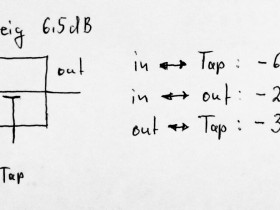 eig 6.5 dB
out
Tap
in ↔ Tap : - 6
in ↔ out : - 2
out ↔ Tap : - 3